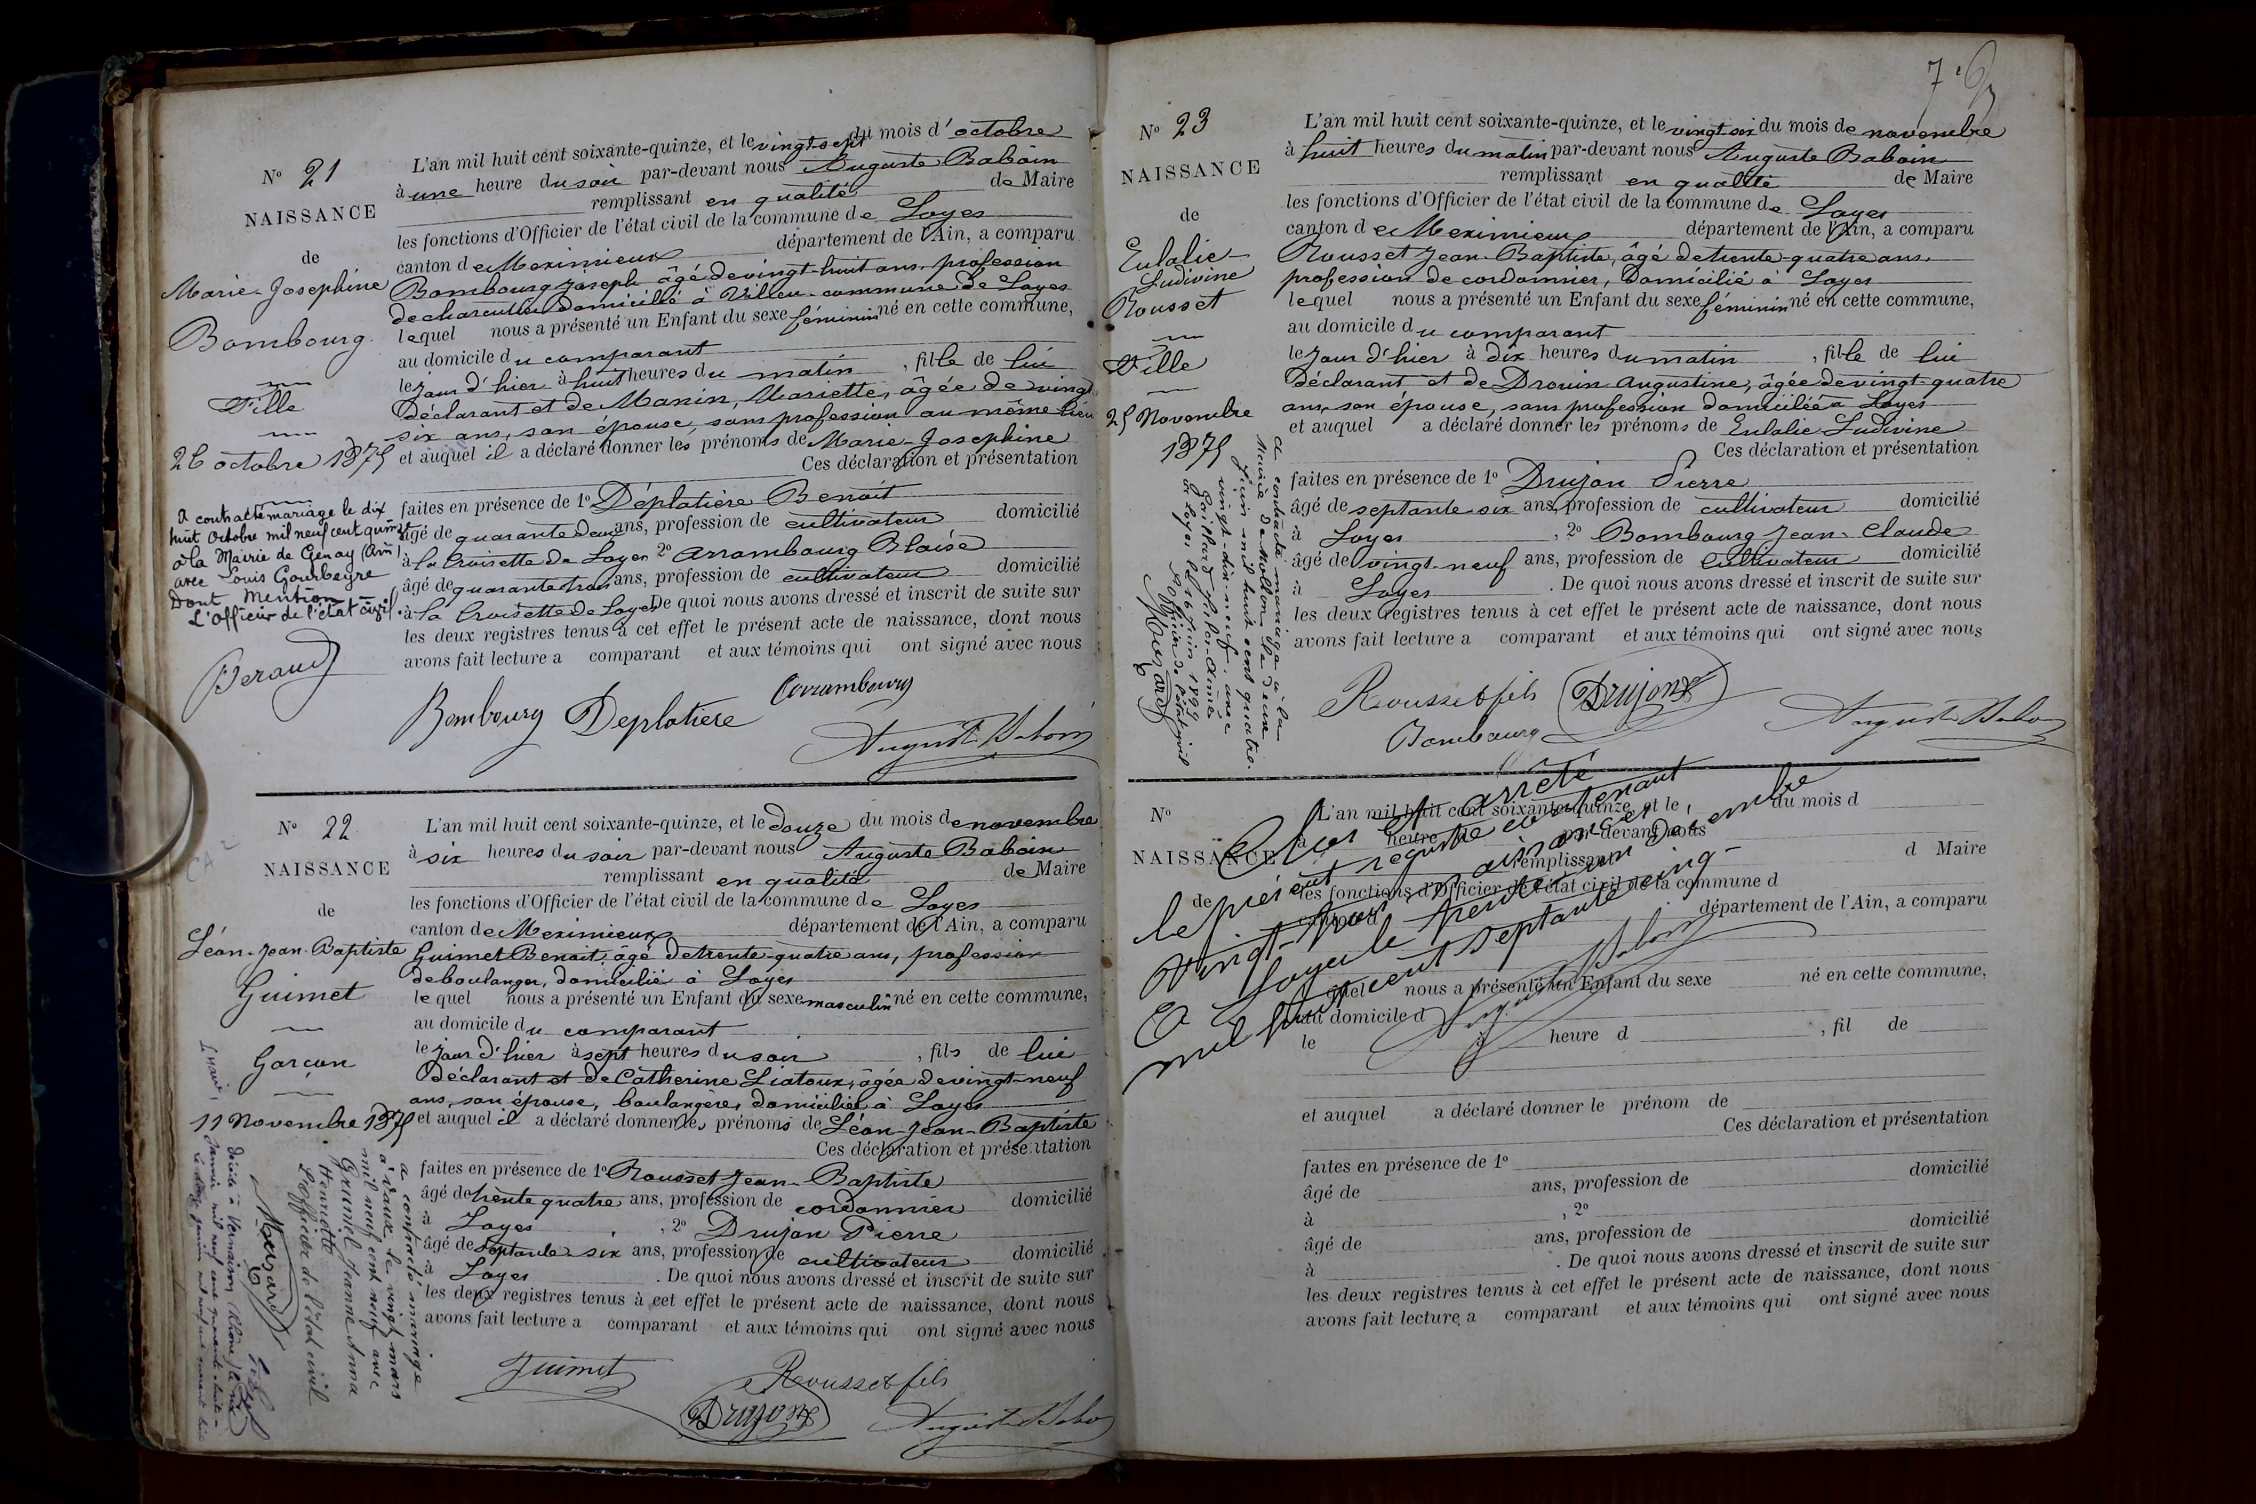 N° 21
NAISSANCE
de
Marie-Josephine
Bombourg
Fille
26 octobre 1875
a contracté mariage le dix
huit Octobre mil neuf cent quinze
à la Mairie de Genay (Ain)
avec Louis Gourbeyre
Dont Mention
L'officier de l'état civil.
Beraud
L'an mil huit cent soixante-quinze, et le vingt-sept du mois d'octobre
à une heure du soir par-devant nous Auguste Baboin
remplissant en qualité de Maire
les fonctions d'Officier de l'état civil de la commune de Loyes
canton de Meximieux département de l'Ain, a comparu
Bombourg Joseph âgé de vingt-huit ans, profession
de charcutier domicilié à Villieu commune de Loyes
lequel nous a présenté un Enfant du sexe féminin né en cette commune,
au domicile du comparant
le jour d'hier à huit heures du matin, fille de lui
déclarant et de Manin, Mariette, âgée de vingt
six ans, son épouse, sans profession au même lieu
et auquel il a déclaré donner les prénoms de Marie-Josephine
Ces déclaration et présentation
faites en présence de 1° Déplatière Benoit
âgé de quarante deux ans, profession de cultivateur domicilié
à la Croisette de Loyes 2° Arrambourg Blaise
âgé de quarante trois ans, profession de cultivateur domicilié
à la Croisette de Loyes De quoi nous avons dressé et inscrit de suite sur
les deux registres tenus à cet effet le présent acte de naissance, dont nous
avons fait lecture a comparant et aux témoins qui ont signé avec nous
Bombourg Deplatiere Arrambourg
Auguste Baboin
N° 22
NAISSANCE
de
Léon-Jean-Baptiste
Guimet
Garçon
11 Novembre 1875
a contracté mariage
à Vaux le vingt mars
mil neuf cent neuf avec
Gruniel Jeanne Anna
Henriette
L'officier de l'état civil
Décédé à Vernaison (Rhône) le six
janvier mil neuf cent quarante-huit
L'an mil huit cent soixante-quinze, et le douze du mois de novembre
à six heures du soir par-devant nous Auguste Baboin
remplissant en qualité de Maire
les fonctions d'Officier de l'état civil de la commune de Loyes
canton de Meximieux département de l'Ain, a comparu
Guimet Benoit, âgé de trente-quatre ans, profession
de boulanger, domicilié à Loyes
lequel nous a présenté un Enfant du sexe masculin né en cette commune,
au domicile du comparant
le jour d'hier à sept heures du soir, fils de lui
déclarant et de Catherine Liatoux, âgée de vingt-neuf
ans, son épouse, boulangère, domiciliée à Loyes
et auquel il a déclaré donner les prénoms de Léon-Jean-Baptiste
Ces déclaration et présentation
faites en présence de 1° Rousset Jean-Baptiste
âgé de trente quatre ans, profession de cordonnier domicilié
à Loyes, 2° Drujon Pierre
âgé de septante six ans, profession de cultivateur domicilié
à Loyes. De quoi nous avons dressé et inscrit de suite sur
les deux registres tenus à cet effet le présent acte de naissance, dont nous
avons fait lecture a comparant et aux témoins qui ont signé avec nous
Guimet Rousset fils
Drujon Auguste Baboin
7e
N° 23
NAISSANCE
de
Eulalie
Ludivine
Rousset
Fille
25 Novembre
1875
a contracté mariage à la
Mairie de Mollon
juin mil huit cent quatre
vingt-dix-neuf, avec
Gaillard
à Loyes le 26 juin 1899
L'officier de l'état civil
L'an mil huit cent soixante-quinze, et le vingt six du mois de novembre
à huit heures du matin par-devant nous Auguste Baboin
remplissant en qualité de Maire
les fonctions d'Officier de l'état civil de la commune de Loyes
canton de Meximieux département de l'Ain, a comparu
Rousset Jean-Baptiste, âgé de trente-quatre ans,
profession de cordonnier, domicilié à Loyes
lequel nous a présenté un Enfant du sexe féminin né en cette commune,
au domicile du comparant
le jour d'hier à dix heures du matin, fille de lui
déclarant et de Drouin Augustine, âgée de vingt-quatre
ans, son épouse, sans profession domiciliée à Loyes
et auquel a déclaré donner les prénoms de Eulalie Ludivine
Ces déclaration et présentation
faites en présence de 1° Drujon Pierre
âgé de septante six ans, profession de cultivateur domicilié
à Loyes, 2° Bombourg Jean-Claude
âgé de vingt-neuf ans, profession de cultivateur domicilié
à Loyes. De quoi nous avons dressé et inscrit de suite sur
les deux registres tenus à cet effet le présent acte de naissance, dont nous
avons fait lecture a comparant et aux témoins qui ont signé avec nous
Rousset fils Drujon
Bombourg Auguste Baboin
Clos et arrêté
le présent registre contenant
vingt-trois naissances
A Loyes le trente un décembre
mil huit cent septante cinq
Auguste Baboin
N°
NAISSANCE
de
L'an mil huit cent soixante-quinze, et le du mois d
à heure d par-devant nous
remplissant d Maire
les fonctions d'Officier de l'état civil de la commune d
canton d département de l'Ain, a comparu
quel nous a présenté un Enfant du sexe né en cette commune,
au domicile d
le à heure d , fil de
et auquel a déclaré donner le prénom de
Ces déclaration et présentation
faites en présence de 1°
âgé de ans, profession de domicilié
à , 2°
âgé de ans, profession de domicilié
à . De quoi nous avons dressé et inscrit de suite sur
les deux registres tenus à cet effet le présent acte de naissance, dont nous
avons fait lecture a comparant et aux témoins qui ont signé avec nous